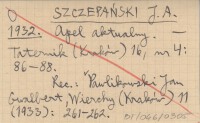 SZCZEPAŃSKI J. A.
1932. Apel aktualny. —
Taternik (Kraków) 16, nr 4:
86-88.
Rec.: Pawlikowski Jan
Gwalbert, Wierchy (Kraków) 11
(1933): 261-262.
01/066/0305